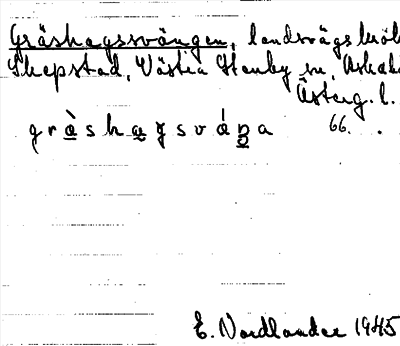 Gräshagssvängen, landsvägskrök
Skepstad, Västra Stenby sn, Askab
Österg. l.
gràshagsváŋa 66.
E. Nordlander 1945